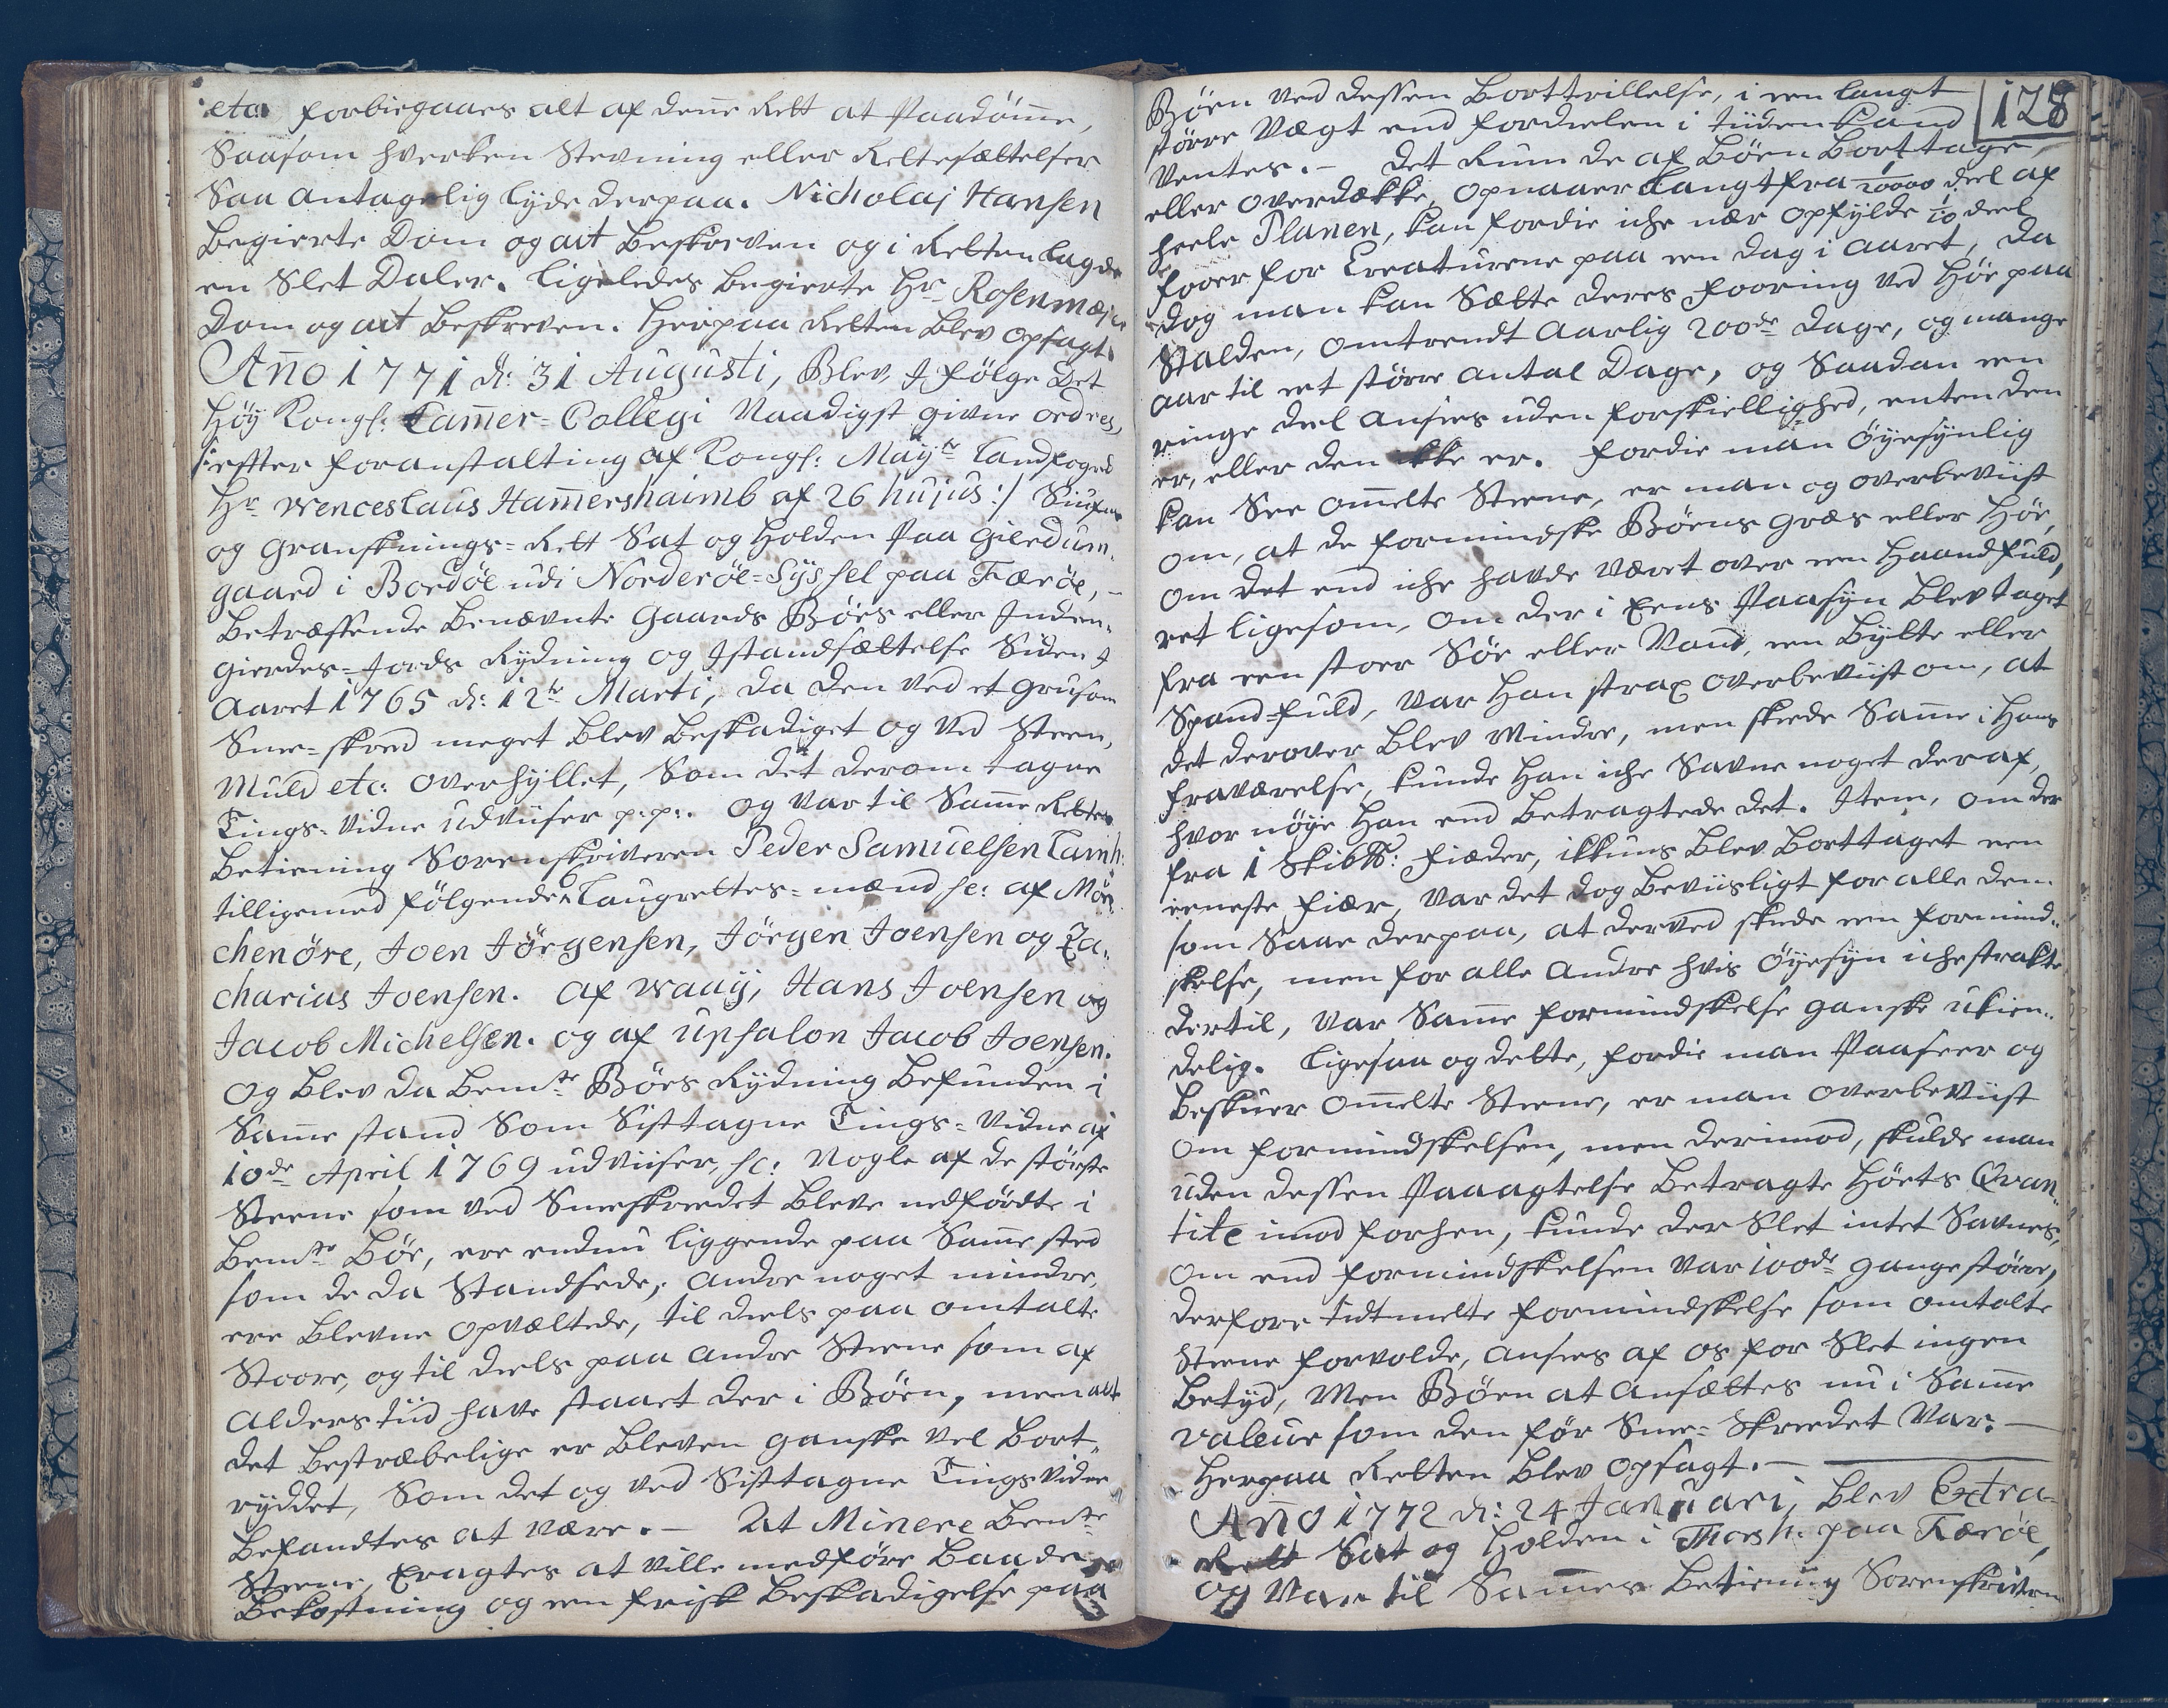 etc. forbiegaaes alt af denne Rett at Paadømme,
Saasom hverken Stevning eller Rettesættelser
Saa antagelig lyde derpaa. Nicholaj Hansen
begierte Dom og act beskreven og i Retten lagde
en Slet Daler. ligeledes begierte Hr Rosenmejer
Dom og act beskreven. Herpaa Retten blev opsagt.
Año 1771 d: 31 Augusti, Blev, J følge Det
Høy Kongl: Camer-Collegi Naadigst givne ordres,
/: efter foranstalting af Kongl: Mayts Landfoged
Hr Wenceslaus Hamershaimb af 26 hujus :/ Siuns
og Gransknings-Rett Sat og holden paa Gierdum-
gaard i Bordøe udi Norderøe-Syssel paa Færøe, –
Betræffende benævnte Gaards Bøes eller Inden-
gierdes-Jords Rydning og Jstandsættelse Siden J
Aaret 1765 d: 12te Marti, da den ved et grusom
Snee-skred meget blev beskadiget og ved Steen,
Muld etc: overhyllet, Som det derom tagne
Tings-Vidne udviiser p.p:. og var til Same Rettes
betiening Sorenskriveren Peder Samuelsen Lamh:
tilligemed følgende Laugrettes-mænd sc: af Møn
chenøre, Joen Jørgensen, Jørgen Joensen og Za-
charias Joensen. af Waaij, Hans Joensen og
Jacob Michelsen. og af Upsalon Jacob Joensen.
Og blev da bemte Bøes Rydning befunden i
Same stand Som Sisttagne Tings-Vidne af
10de April 1769 udviiser, sc: Nogle af de største
Steene som ved Sneeskreedet bleve nedførdte i
bemte Bøe, ere endnu liggende paa Same sted
som de da Standsede, andre noget mindre,
ere blevne opvæltede, til deels paa omtalte
Stoore, og til deels paa andre Steene som af
alders tiid have staaet der i Bøen, men alt
det bestræbelige er bleven ganske vel bort-
ryddet, Som det og ved Sisttagne Tings Vidne
befandtes at være. – At Minere bemte
Steene, Eragtes at ville medføre baade
bekostning og een frisk beskadigelse paa
128
Bøen ved dessen borttrillelse, i een langt
større Vægt end fordeelen i tiiden kand
ventes. – det Rum de af Bøen borttage,
eller overdække, opnaaer langt fra 1/20000 deel af
heele Planen, kan fordie iche nær opfylde 1/10 deel
fooer for Creaturene paa een dag i aaret, da
dog man kan Sætte deres fooring ved Høe paa
Stalden, omtrendt aarlig 200de dage, og mange
aar til eet større antal Dage, og Saadan een
ringe deel ansees uden forskiellighed, enten den
er, eller den ikke er. fordie man øyesynlig
kan See omelte Steene, er man og overbeviist
om, at de formindske Bøens græs eller Høe,
om det end iche havde været over een haandfuld,
ret ligesom, om der i Eens Paasyn blev taget
fra een stoer Søe eller Vand, een bylte eller
Spand-fuld, var han strax overbeviist om, at
det derover blev Mindre, men skede Same i hans
fraværelse, kunde han iche Savne noget deraf,
hvor nøye han end betragtede det. Jtem, om der
fra 1 Skib℔: fieder, ikkuns blev borttaget een
eeneste fiær, var det dog beviisligt for alle dem
som Saae derpaa, at derved skede een formind-
skelse, men for alle andre hvis øyesyn iche strakte
dertil, var Same formindskelse ganske ukien-
delig. ligesaa og dette, fordie man Paaseer og
beskuer omelte Steene, er man overbeviist
om formindskelsen, men derimod, skulde man
uden dessen Paaagtelse betragte Høets Qvan-
tite imod forhen, kunde der Slet intet Savnes,
om end formindskelsen var 100de gange større,
derfore tidtmelte formindskelse som omtalte
Steene forvolde, ansees af os for Slet ingen
betyd, Men Bøen at ansættes nu i Same
valeur som den før Snee-Skreedet var. –
Herpaa Retten blev opsagt. –
Año 1772 d: 24 Januari, blev Extra-
Rett Sat og holden i Thorsh: paa Færøe,
og Var til Sammes betiening Sorenskriveren